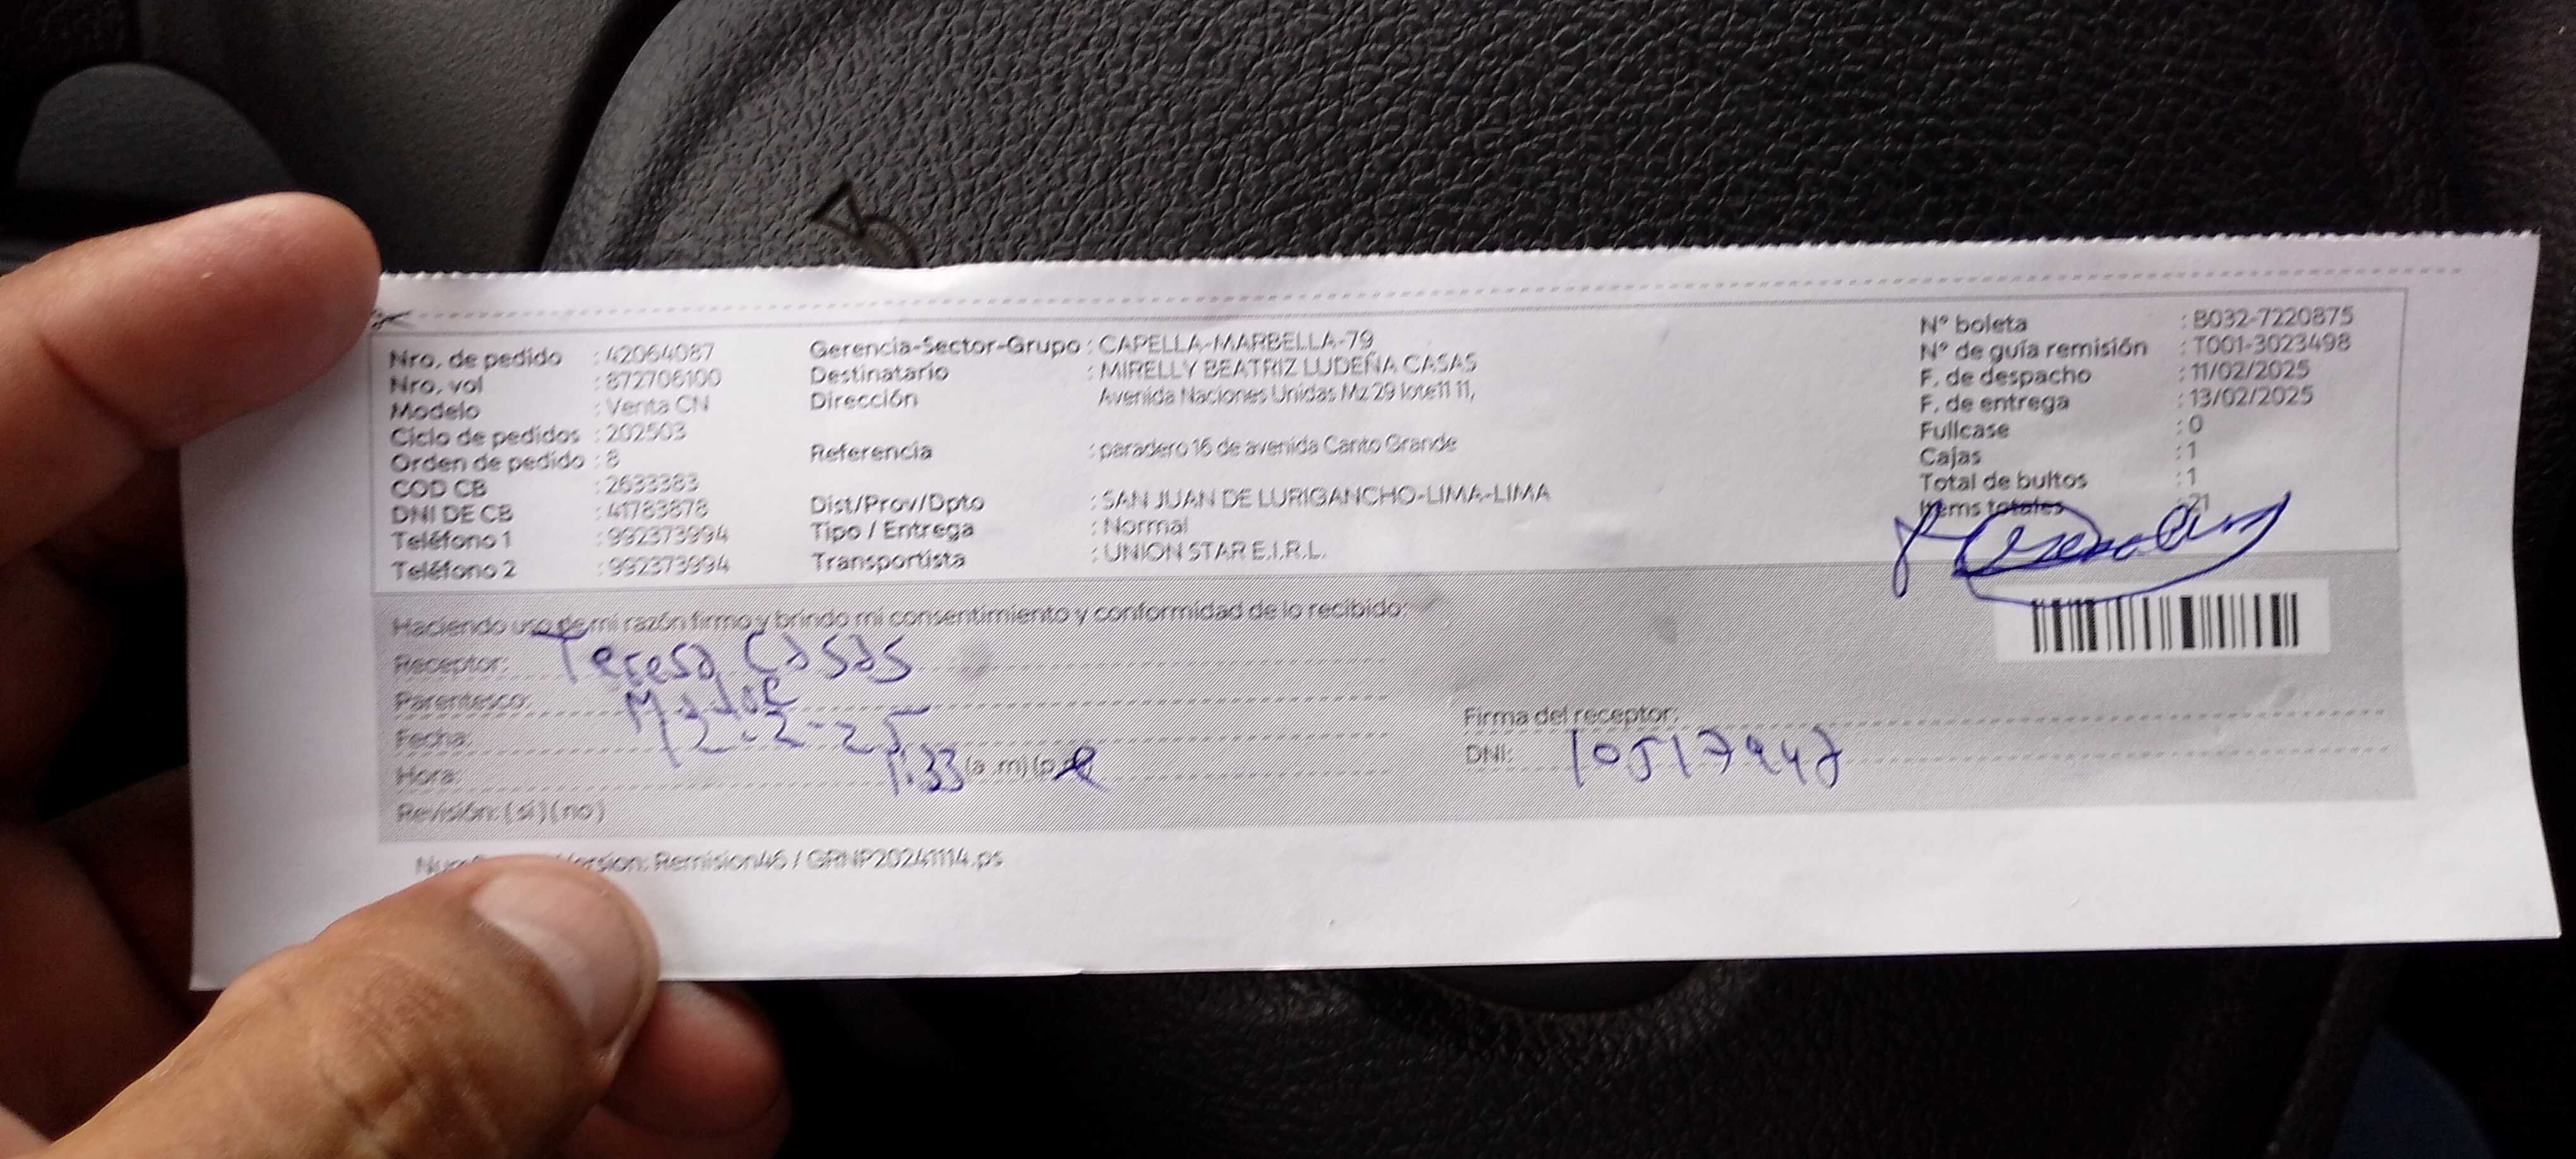 Nro. de pedido : 42064087
Nro. vol : 872706100
Modelo : Venta CN
Ciclo de pedidos : 202503
Orden de pedido : 8
COD CB : 2633383
DNI DE CB : 41783878
Teléfono 1 : 992373994
Teléfono 2 : 992373994
Gerencia-Sector-Grupo : CAPELLA-MARBELLA-79
Destinatario : MIRELLY BEATRIZ LUDEÑA CASAS
Dirección Avenida Naciones Unidas Mz 29 lote11 11,
Referencia : paradero 16 de avenida Canto Grande
Dist/Prov/Dpto : SAN JUAN DE LURIGANCHO-LIMA-LIMA
Tipo / Entrega : Normal
Transportista : UNION STAR E.I.R.L.
N° boleta : B032-7220875
N° de guía remisión : T001-3023498
F. de despacho : 11/02/2025
F. de entrega : 13/02/2025
Fullcase : 0
Cajas : 1
Total de bultos : 1
Items totales : 21
Haciendo uso de mi razón firmo y brindo mi consentimiento y conformidad de lo recibido:
Receptor: Teresa Casas
Parentesco: Madre
Fecha: 12-2-25
Hora: 1:33 (a .m) (p
Revisión: ( si ) ( no )
Firma del receptor:
DNI: 10517947
Remision46 / GRNP20241114.ps